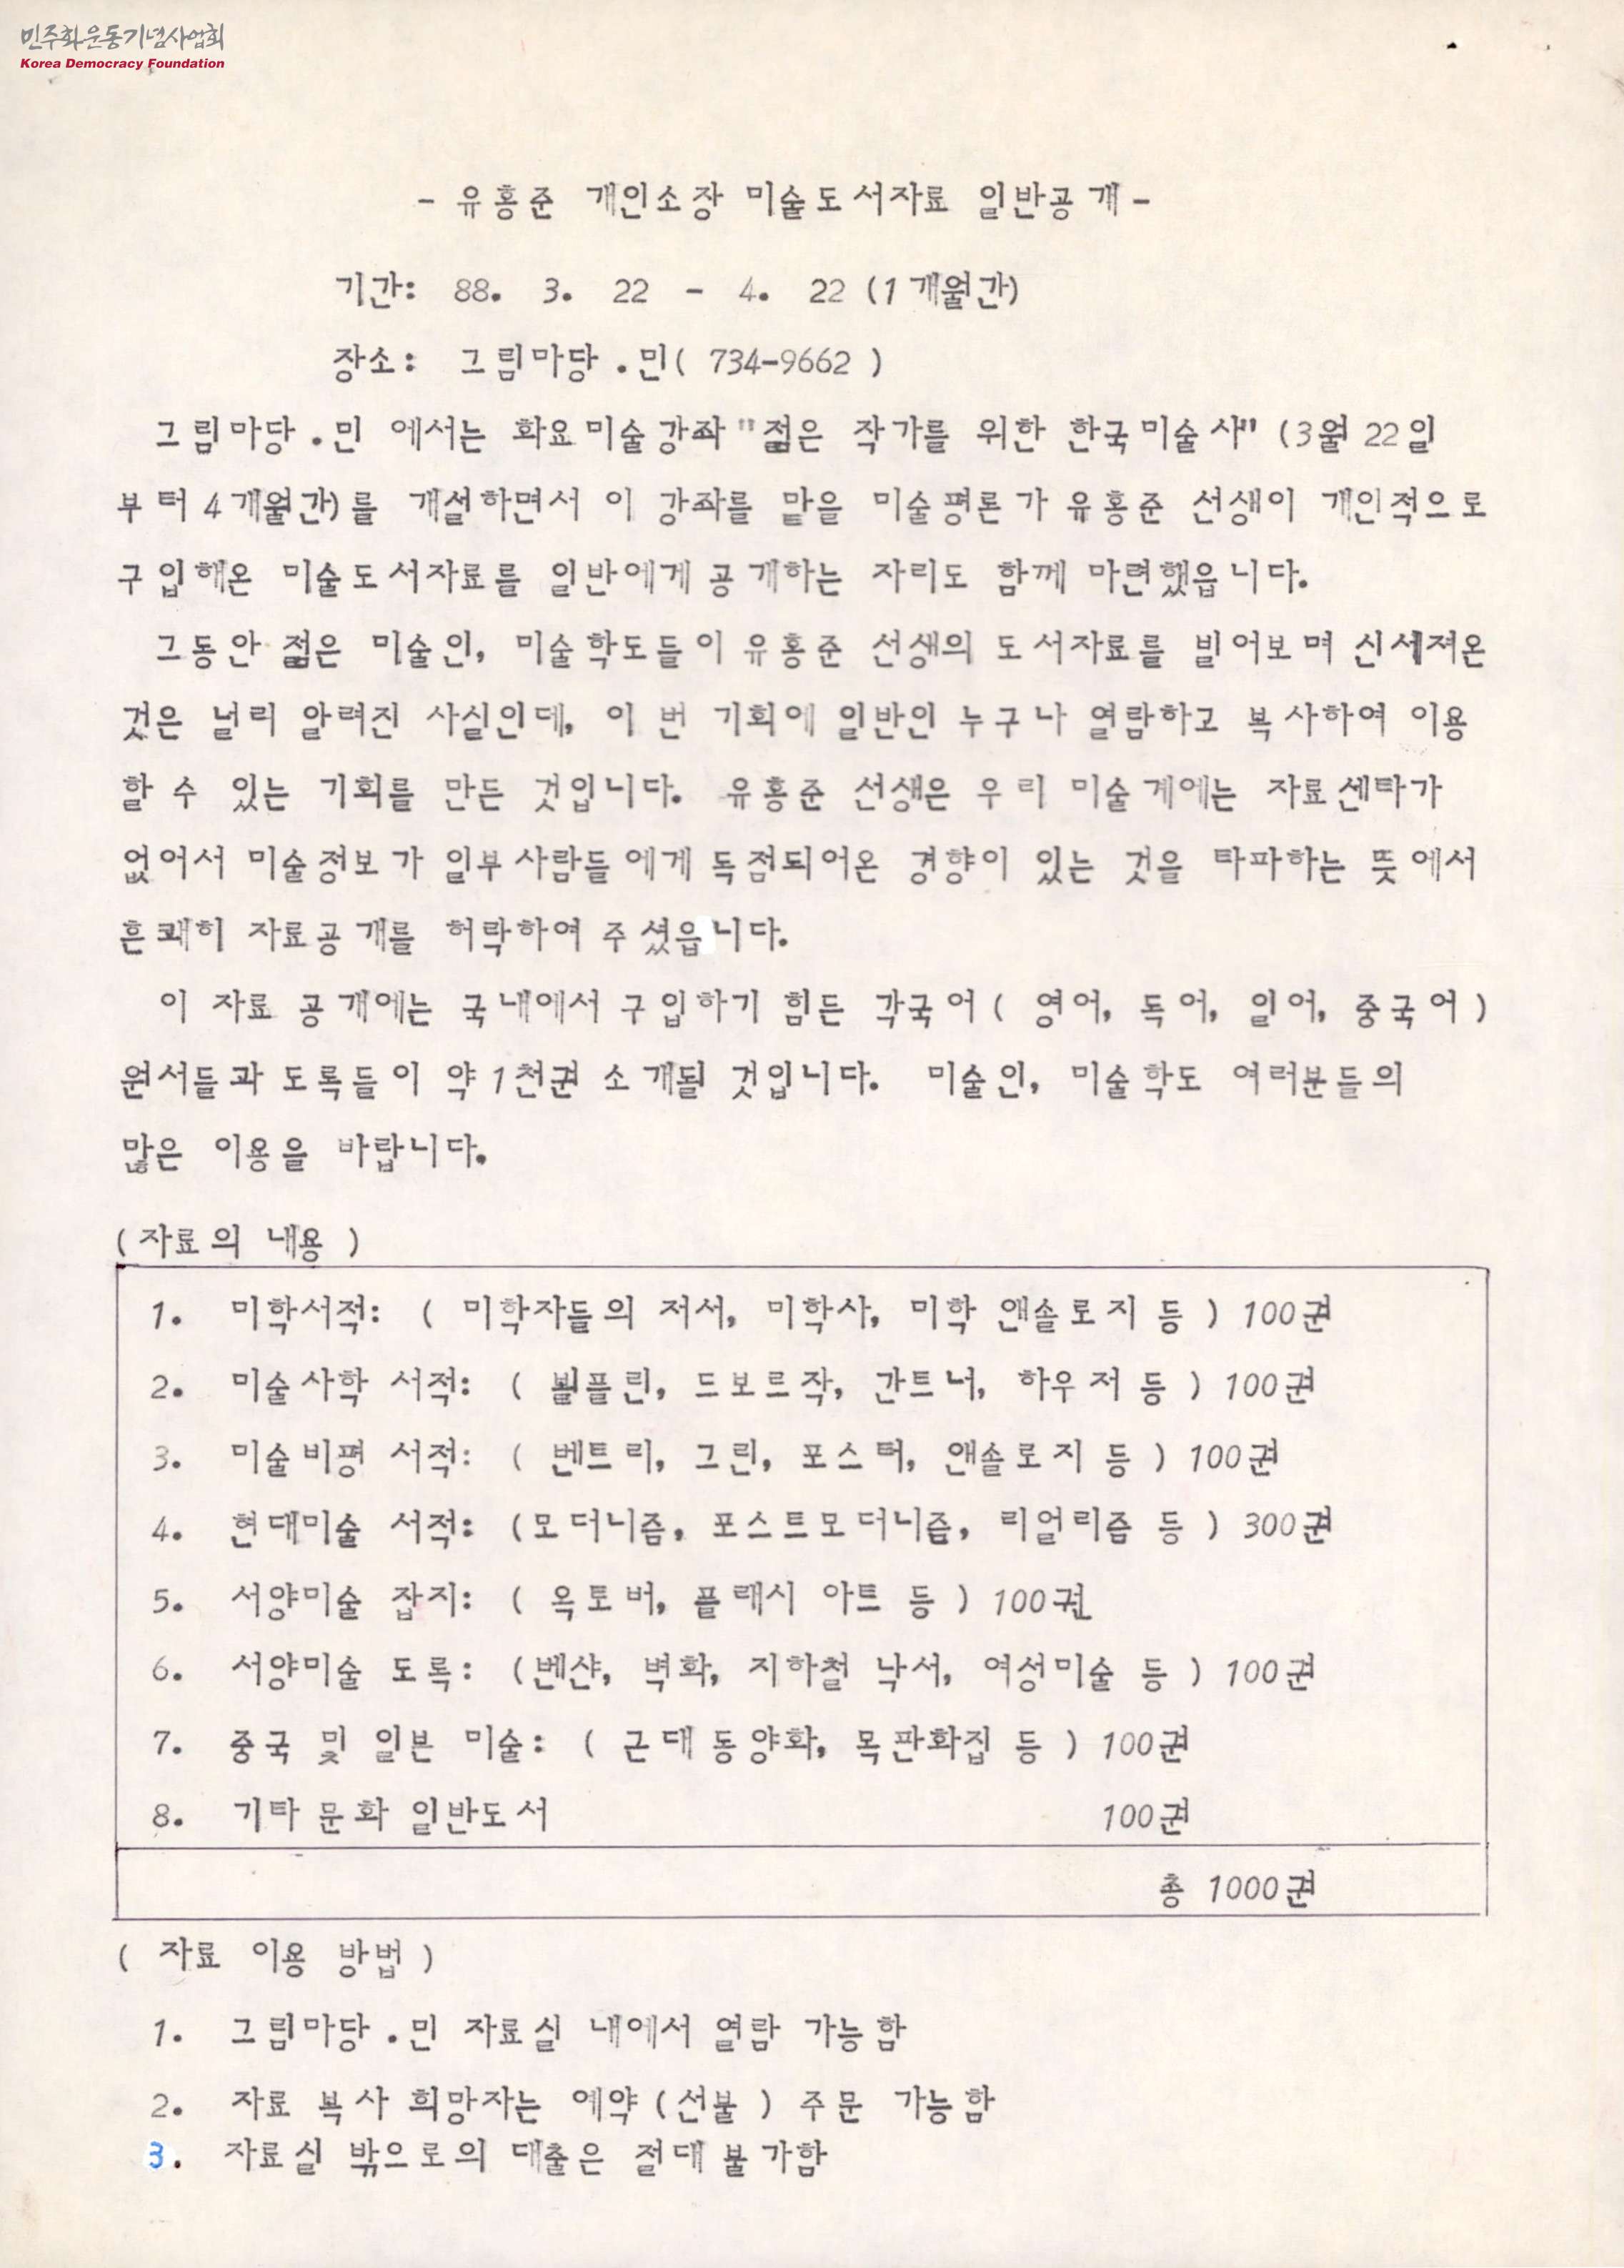 민주화운동기념사업회
Korea Democracy Foundation
- 유홍준 개인소장 미술도서자료 일반공개 -
기간: 88. 3. 22 - 4. 22 (1개월간)
장소: 그림마당.민( 734-9662 )
그림마당.민 에서는 화요미술강좌 "젊은 작가를 위한 한국미술사" (3월 22일
부터 4개월간)를 개설하면서 이 강좌를 맡을 미술평론가 유홍준 선생이 개인적으로
구입해온 미술도서자료를 일반에게 공개하는 자리도 함께 마련했읍니다.
그동안 젊은 미술인, 미술학도들이 유홍준 선생의 도서자료를 빌어보며 신세져온
것은 널리 알려진 사실인데, 이 번 기회에 일반인 누구나 열람하고 복사하여 이용
할 수 있는 기회를 만든 것입니다. 유홍준 선생은 우리 미술계에는 자료센타가
없어서 미술정보가 일부사람들에게 독점되어온 경향이 있는 것을 타파하는 뜻에서
흔쾌히 자료공개를 허락하여 주셨읍니다.
이 자료 공개에는 국내에서 구입하기 힘든 각국어( 영어, 독어, 일어, 중국어 )
원서들과 도록들이 약 1천권 소개될 것입니다. 미술인, 미술학도 여러분들의
많은 이용을 바랍니다.
( 자료의 내용 )
1. 미학서적: ( 미학자들의 저서, 미학사, 미학 앤솔로지 등 ) 100권
2. 미술사학 서적: ( 뵐플린, 드보르작, 간트너, 하우저 등 ) 100권
3. 미술비평 서적: ( 벤트리, 그린, 포스터, 앤솔로지 등 ) 100권
4. 현대미술 서적: (모더니즘, 포스트모더니즘, 리얼리즘 등 ) 300권
5. 서양미술 잡지: ( 옥토버, 플래시 아트 등 ) 100권
6. 서양미술 도록: (벤샨, 벽화, 지하철 낙서, 여성미술 등 ) 100권
7. 중국 및 일본 미술: ( 근대동양화, 목판화집 등 ) 100권
8. 기타 문화 일반도서 100권
총 1000권
( 자료 이용 방법 )
1. 그림마당.민 자료실 내에서 열람 가능함
2. 자료 복사 희망자는 예약(선불 ) 주문 가능함
3. 자료실 밖으로의 대출은 절대 불가함